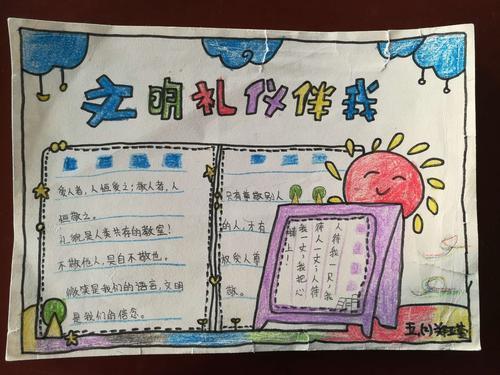 文明礼仪伴我
爱人者，人恒爱之；敬人者，人
恒敬之。
礼貌是人类共存的教室！
不敬他人，是自不敬也。
微笑是我们的语言，文明
是我们的信念。
只有尊敬别人
的人，才有
权受人尊
敬。
人待我一尺，我
待人一丈；人待
我一丈，我把心
铺上！